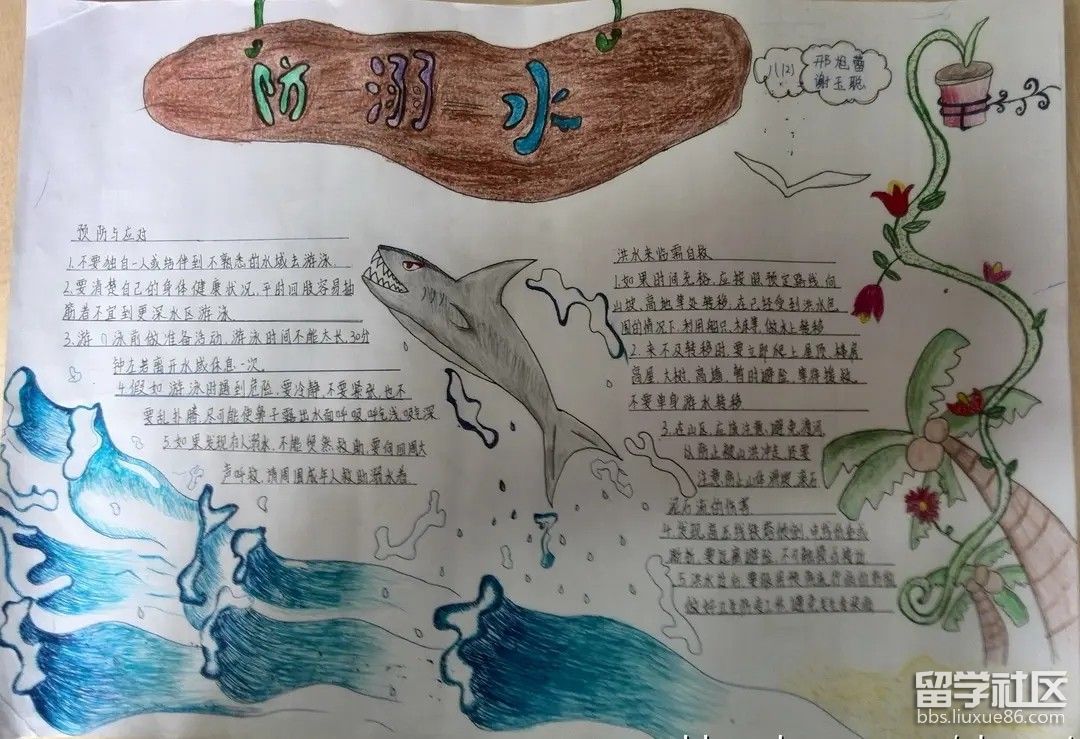 防溺水
八(2) 邢焰蕾
谢玉聪
预防与应对
1.不要独自一人或结伴到不熟悉的水域去游泳.
2.要清楚自己的身体健康状况,平时四肢容易抽
筋者不宜到更深水区游泳
3.游泳前做准备活动,游泳时间不能太长,30分
钟左右离开水域休息一次.
4.假如游泳时遇到危险,要冷静,不要紧张,也不
要乱扑腾,尽可能使鼻子露出水面呼吸,呼气浅,吸气深
5.如果发现有人溺水,不能贸然救助,要向周围大
声呼救,请周围成年人救助溺水者
洪水来临需自救
1.如果时间充裕,应按照预定路线向
山坡,高地等处转移,在已经受到洪水包
围的情况下,利用船只,木排等,做水上转移
2.来不及转移时,要立即爬上屋顶,楼房
高屋,大树,高墙,暂时避险,等待援救,
不要单身游水转移
3.在山区,应该注意避免渡河
以防止被山洪冲走,还要
注意防止山体滑坡,滚石
泥石流的伤害
4.发现高压线铁塔倾倒,电线低垂或
断折,要远离避险,不可触摸或接近
5.洪水过后,要服用预防流行病的药物
做好卫生防疫工作,避免发生传染病
留学社区
bbs.liuxue86.com